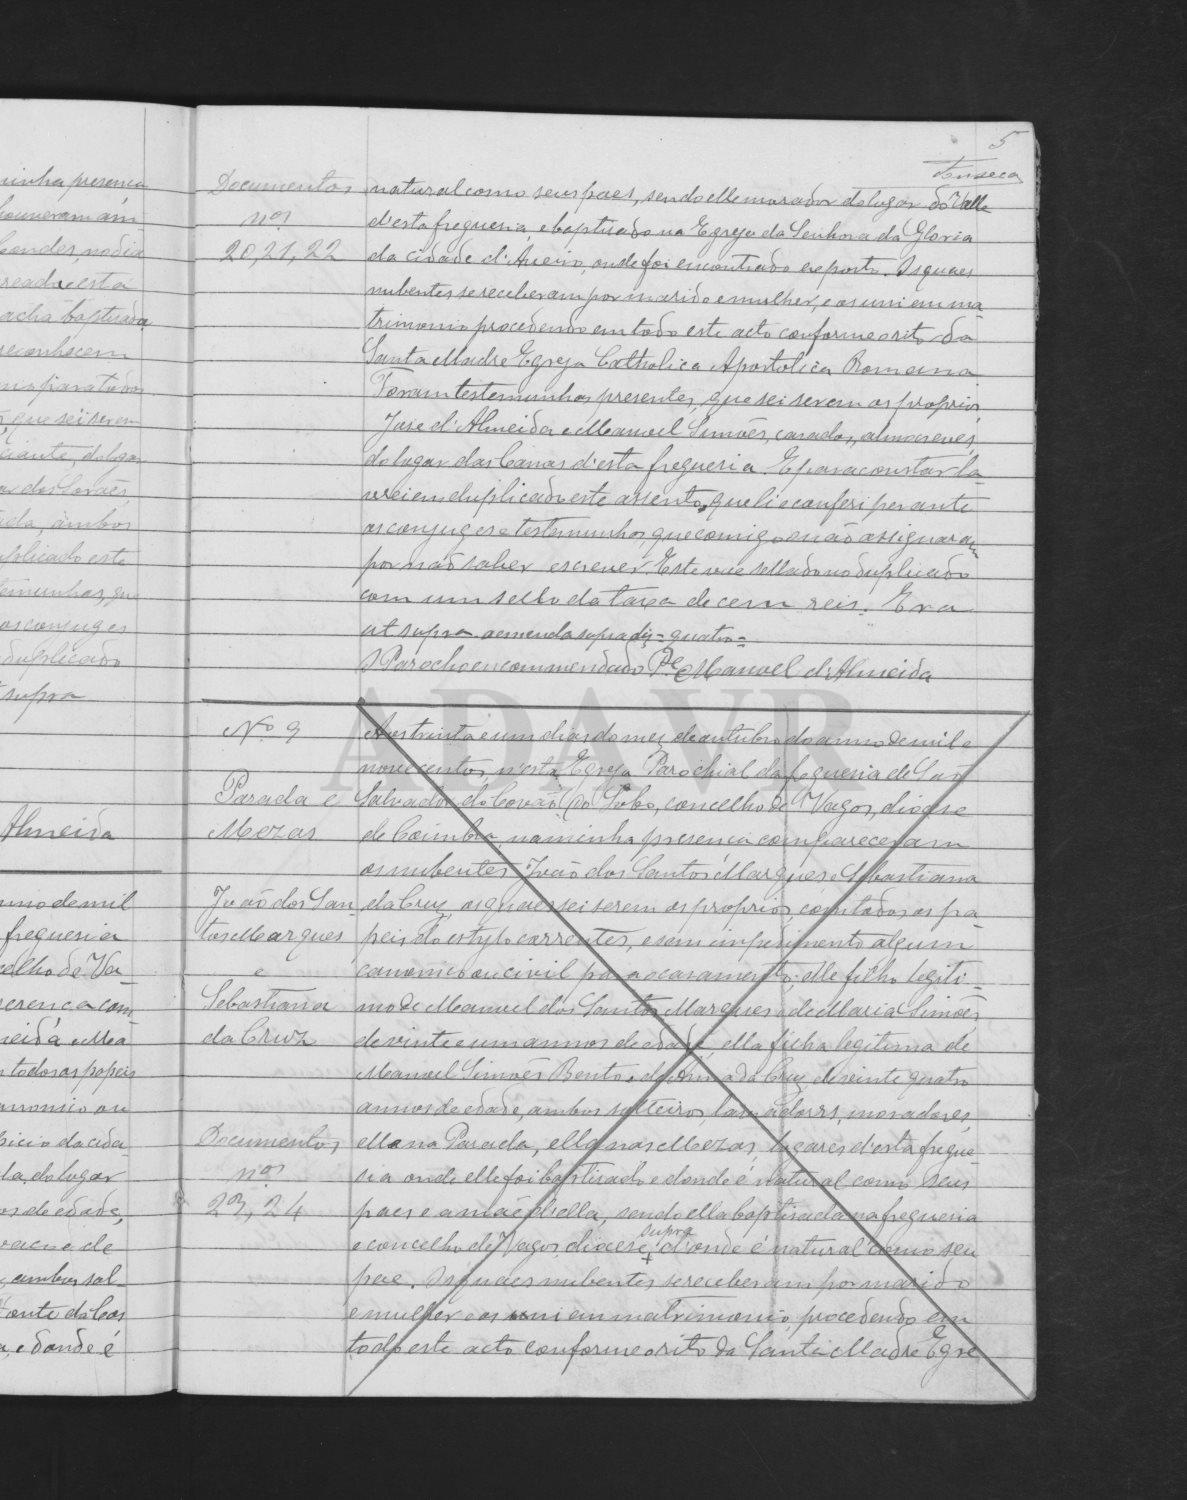 5
Fonseca
ninha presença
reade esta
acha baptisada
reconhecem
que sei serem
ada, ambos
uplicado este
temunhas, que
os conjuges
duplicado
supra
Almeida
anno de mil
freguesia
celho de Va-
presença com-
neida e Ma-
todos os papeis
canonico ou
picio da cida-
la, do lugar
os de edade,
ambos sol-
onte da Cos
a, e donde é
Documentos
nos
20, 21, 22
natural como seus paes, sendo elle morador do lugar do Valle
d'esta freguesia, e baptisado na Egreja da Senhora da Gloria
da cidade d'Aveiro, onde foi encontrado exposto. Os quaes
nubentes se receberam por marido e mulher, e os uni em ma-
trimonio procedendo em todo este acto conforme o rito da
Santa Madre Egreja Catholica Apostolica Romana
Foram testemunhas presentes, que sei serem os proprios,
José d'Almeida e Manoel Simões, casados, almocreves,
do lugar das Canas d'esta freguesia. E para constar la-
vrei em duplicado este assento, que li e conferi perante
os conjuges e testemunhas, que comigo não assignaram
por não saber escrever. Este vae sellado no duplicado
com um sello da taxa de cem reis. Era
ut supra a emenda supra diz = quatro =
O Parocho encommendado Pe Manoel d'Almeida
ADAVR
No 9
Parada e
Mezas
João dos San-
tos Marques
e
Sebastiana
da Cruz
Documentos
nos
23, 24
Aos trinta e um dias do mez de outubro do anno de mil e
novecentos, n'esta Egreja Parochial da freguesia de São
Salvador do Covão do Lobo, concelho de Vagos, diocese
de Coimbra, na minha presença compareceram
os nubentes João dos Santos Marques e Sebastiana
da Cruz, os quaes sei serem os proprios, com todos os pa-
peis do estylo correntes, e sem impedimento algum
canonico ou civil para o casamento; elle filho legiti-
mo de Manuel dos Santos Marques e de Maria Simões,
de vinte e um annos de edade, ella filha legitima de
Manoel Simões Bento e de Anna da Cruz, de vinte quatro
annos de edade, ambos solteiros, lavradores, moradores,
elle na Parada, ella nas Mezas, lugares d'esta fregue-
sia onde elle foi baptisado e donde é natural como seus
paes e a mãe d'ella, sendo ella baptisada na freguesia
supra
e concelho de Vagos, diocese + d'onde é natural como seu
pae. Os quaes nubentes se receberam por marido
e mulher e os uni em matrimonio, procedendo em
todo este acto conforme o rito da Santa Madre Egre